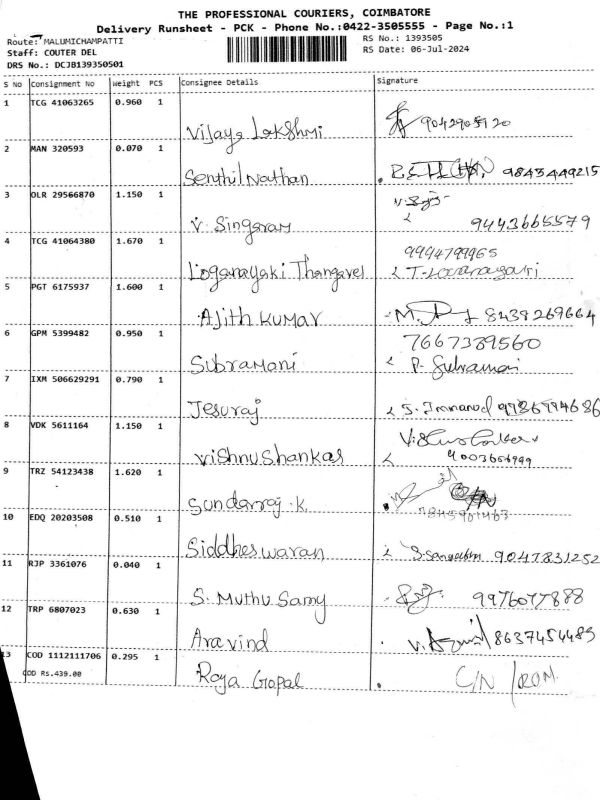 THE PROFESSIONAL COURIERS, COIMBATORE
Delivery Runsheet - PCK - Phone No.:0422-3505555 - Page No.:1
Route: MALUMICHAMPATTI
RS No.: 1393505
Staff: COUTER DEL
RS Date: 06-Jul-2024
DRS No.: DCJB139350501
S No Consignment No Weight PCS Consignee Details Signature
1 TCG 41063265 0.960 1
Vijaya Lakshmi 9042905120
2 MAN 320593 0.070 1
Senthil Nathan 9843449215
3 OLR 29566870 1.150 1
V. Singaram 9443665579
4 TCG 41064380 1.670 1
9994799965
Loganayaki Thangavel
5 PGT 6175937 1.600 1
Ajith Kumar 8438269664
6 GPM 5399482 0.950 1
7667389560
Subramani P. Subramani
7 IXM 506629291 0.790 1
Jesuraj
8 VDK 5611164 1.150 1
Vishnu Shankar
9 TRZ 54123438 1.620 1
Sundarraj .K.
10 EDQ 20203508 0.510 1
Siddheswaran 9047831252
11 RJP 3361076 0.040 1
S. Muthu Samy 9976077888
12 TRP 6807023 0.630 1
Aravind 8637454489
13 COD 1112111706 0.295 1
COD Rs.439.00
Raja Gopal C/N